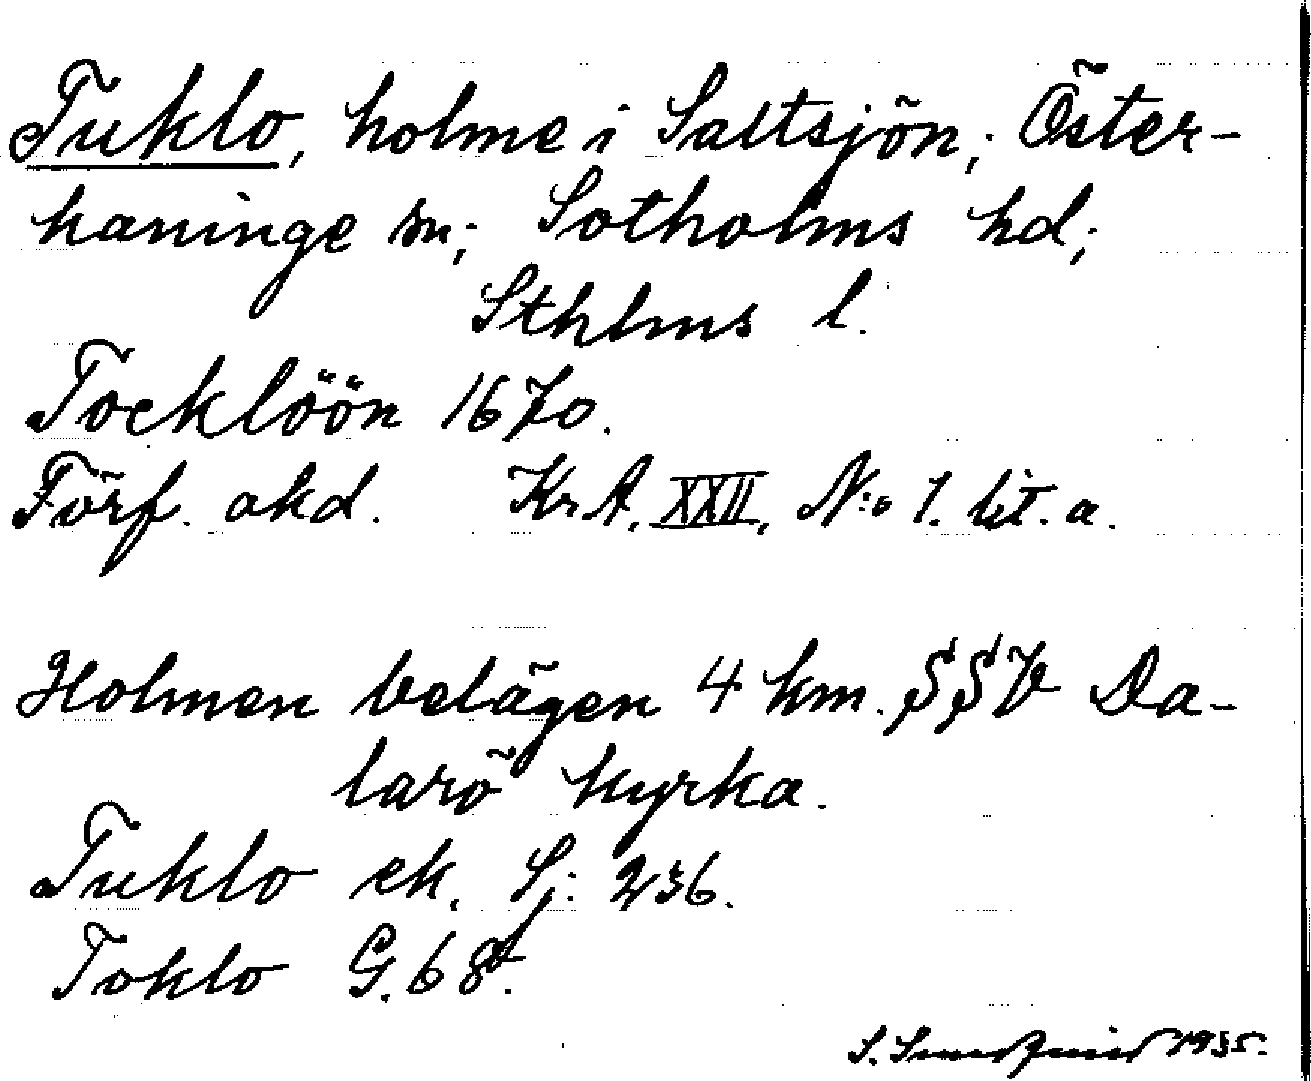 Tuklo, holme i Saltsjön; Öster-
haninge sn; Sotholms hd;
Sthlms l.
Tocklöön 1670.
Förf. okd. KrA, XXII, N:o 1. lit. a.
Holmen belägen 4 km. SSV Da-
larö kyrka.
Tuklo ek. Sj: 236.
Toklo G. 68.
S. 1935.